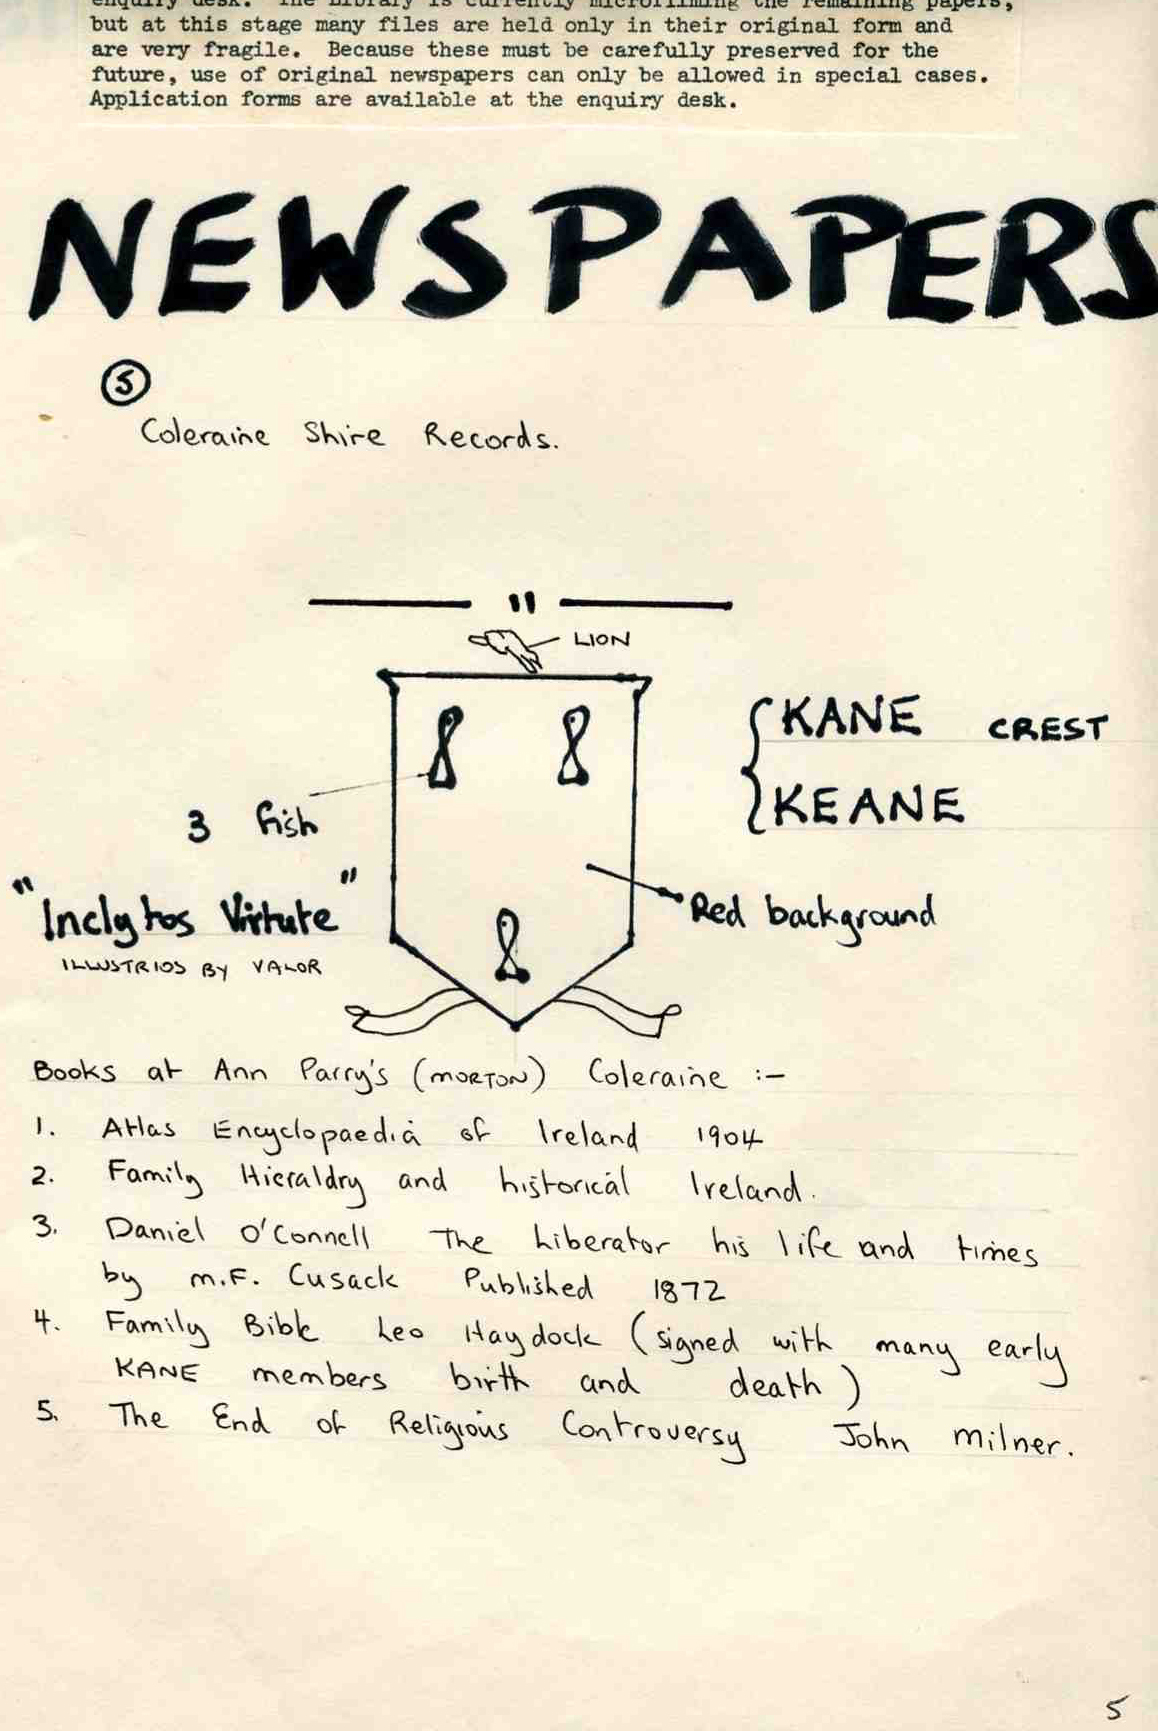 enquiry desk. The Library is currently microfilming the remaining papers,
but at this stage many files are held only in their original form and
are very fragile. Because these must be carefully preserved for the
future, use of original newspapers can only be allowed in special cases.
Application forms are available at the enquiry desk.
NEWSPAPERS
5
Coleraine Shire Records.
"
LION
KANE CREST
KEANE
3 fish
"Inclytos Virtute"
ILLUSTRIOS BY VALOR
Red background
Books at Ann Parry's (MORTON) Coleraine :-
1. Atlas Encyclopaedia of Ireland 1904
2. Family Hieraldry and historical Ireland.
3. Daniel O'Connell The Liberator his life and times
by M.F. Cusack Published 1872
4. Family Bible Leo Haydock (signed with many early
KANE members birth and death)
5. The End of Religious Controversy John Milner.
5